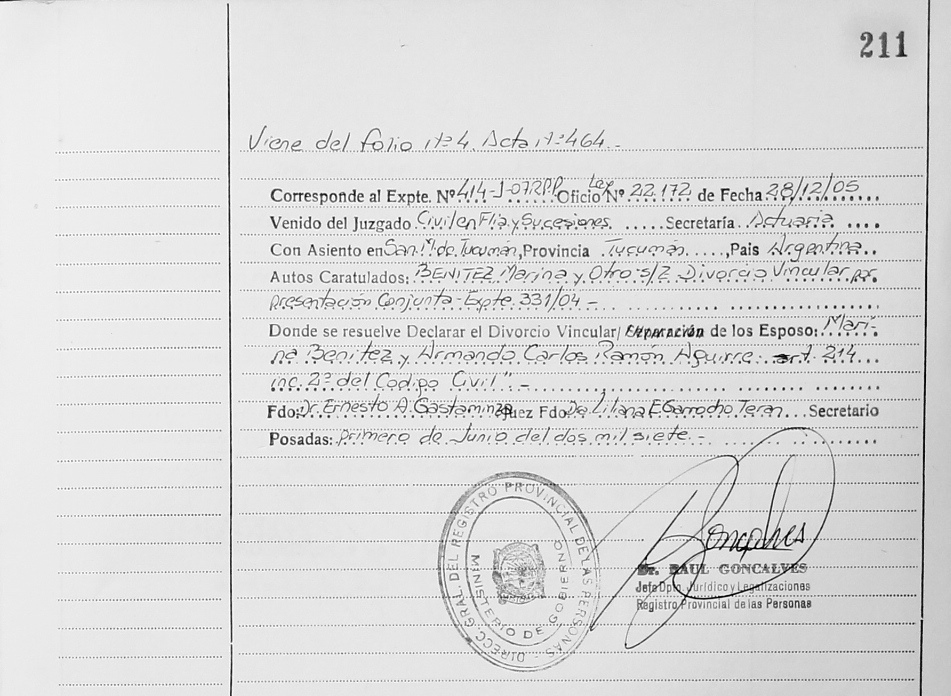 211
Viene del folio nº 4. Acta nº 464.-
Corresponde al Expte. Nº 414-J-07RPP Oficio Ley Nº 22.172 de Fecha 28/12/05
Venido del Juzgado Civil en Flia y Sucesiones Secretaría Actuaria
Con Asiento en San M. de Tucumán, Provincia Tucumán, Pais Argentina
Autos Caratulados: BENITEZ Marina y Otro s/ Divorcio Vincular por
presentación Conjunta - Expte. 331/04 -
Donde se resuelve Declarar el Divorcio Vincular/ Separación de los Esposo: Mari-
na Benitez y Armando Carlos Ramón Aguirre art. 214
inc. 2º del Codigo Civil" -
Fdo: Dr. Ernesto A. Gastaminza Juez Fdo. Dra. Liliana E Garrocho Teran Secretario
Posadas: primero de Junio del dos mil siete -
DIRECC. GRAL. DEL REGISTRO PROVINCIAL DE LAS PERSONAS
MINISTERIO DE GOBIERNO
Goncalves
Dr. RAUL GONCALVES
Jefe Dpto. Jurídico y Legalizaciones
Registro Provincial de las Personas